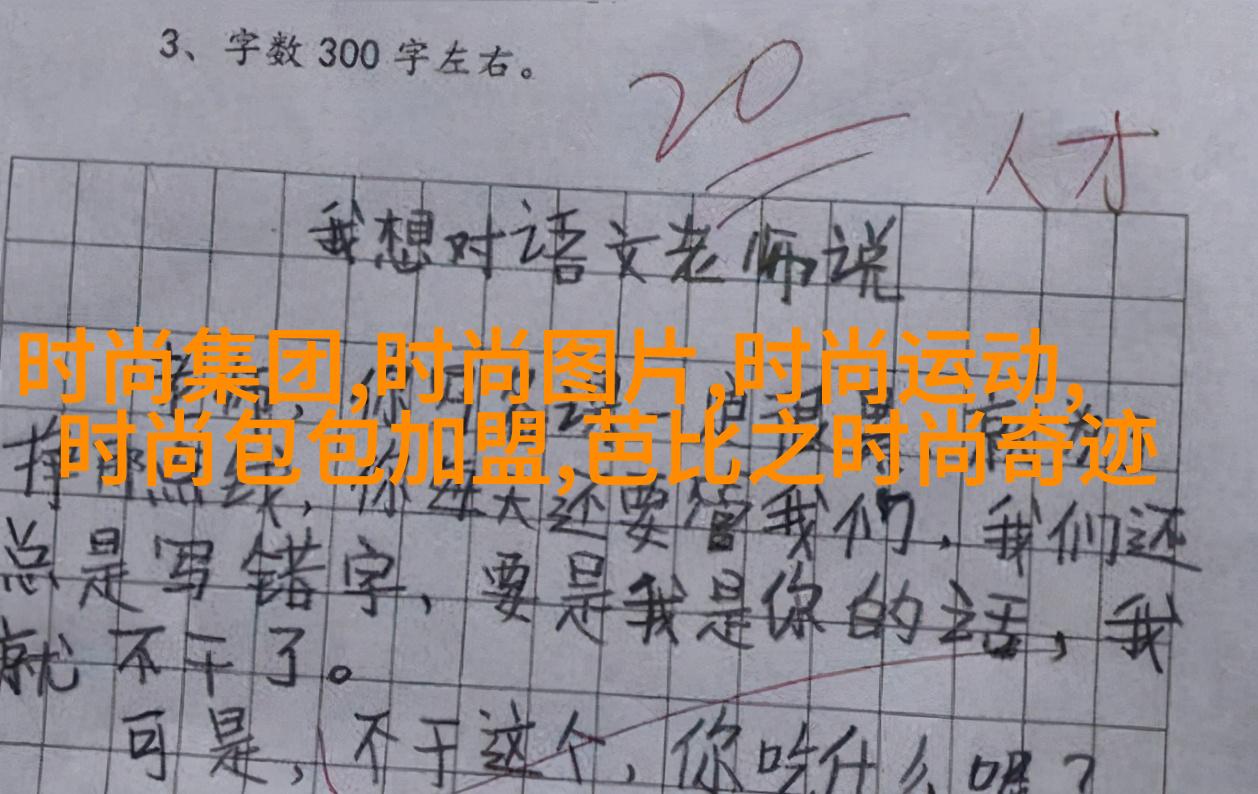 3、字数300字左右。
20
人才
我想对语文老师说
时尚集团,时尚图片,时尚运动,
时尚包包加盟,芭比之时尚奇迹
你 还要管我们,我们还
总是写错字,要是我是你的话,我
就不干了。
可是,不干这个,你吃什么呢?